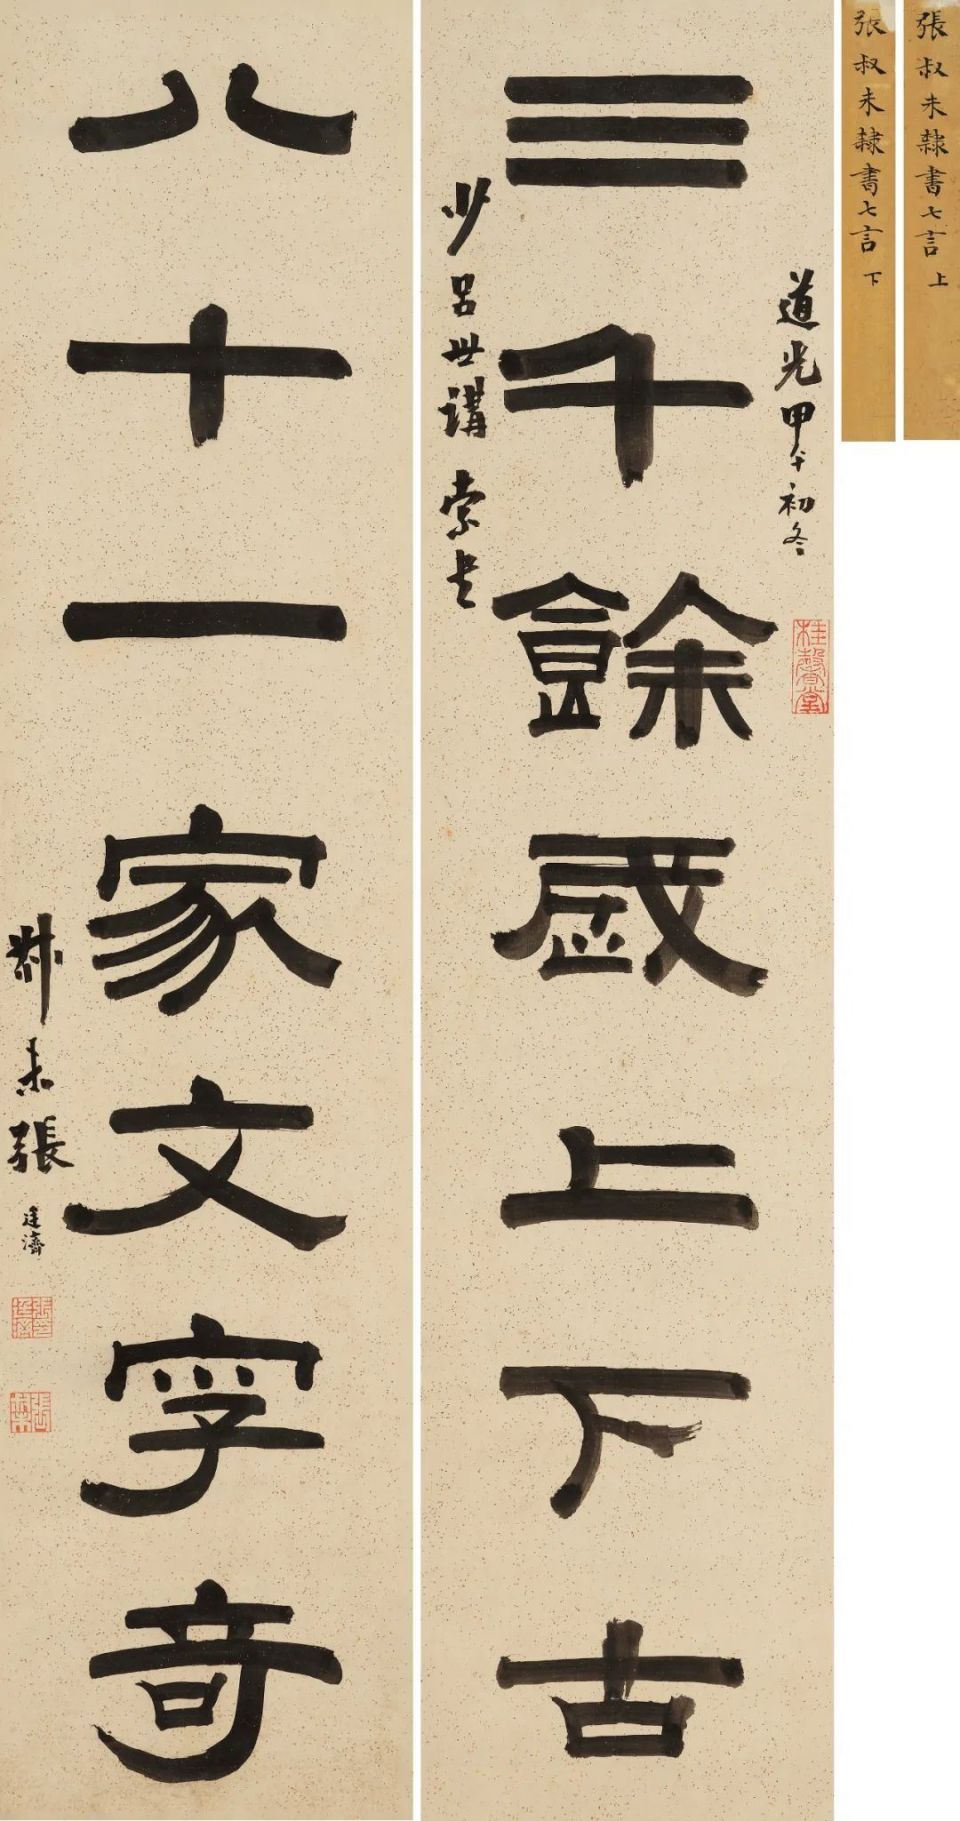 張叔未隸書七言 上
張叔未隸書七言 下
道光甲午初冬
桂馨堂
三千餘歲上下古
少呂世講 索書
八十一家文字奇
叔未張廷濟